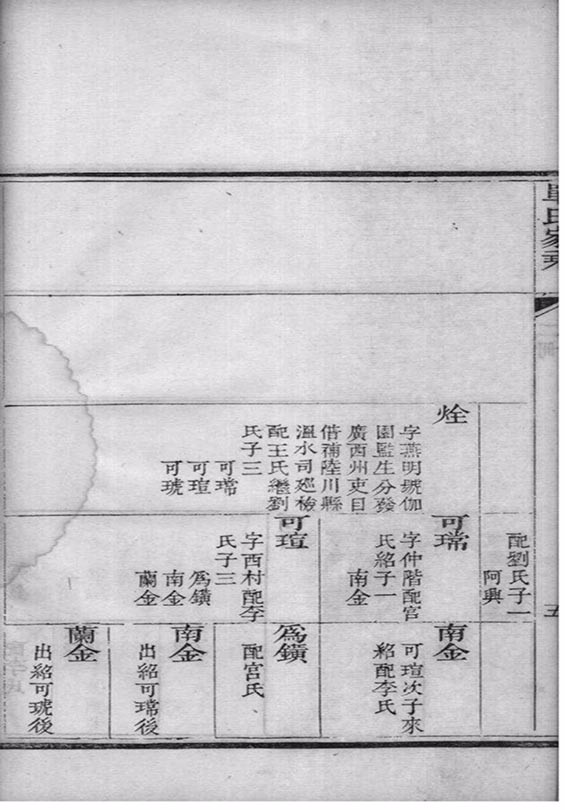 氏家乘
五
烇
字燕明號伽
園監生分發
廣西州吏目
借補陸川縣
溫水司廵檢
配王氏繼劉
氏子三
可瑺
可瑄
可琥
配劉氏子一
阿興
可瑺
字仲階配宮
氏紹子一
南金
可瑄
字西村配李
氏子三
爲鐄
南金
蘭金
南金
可瑄次子來
紹配李氏
爲鐄
配宮氏
南金
出紹可瑺後
蘭金
出紹可琥後